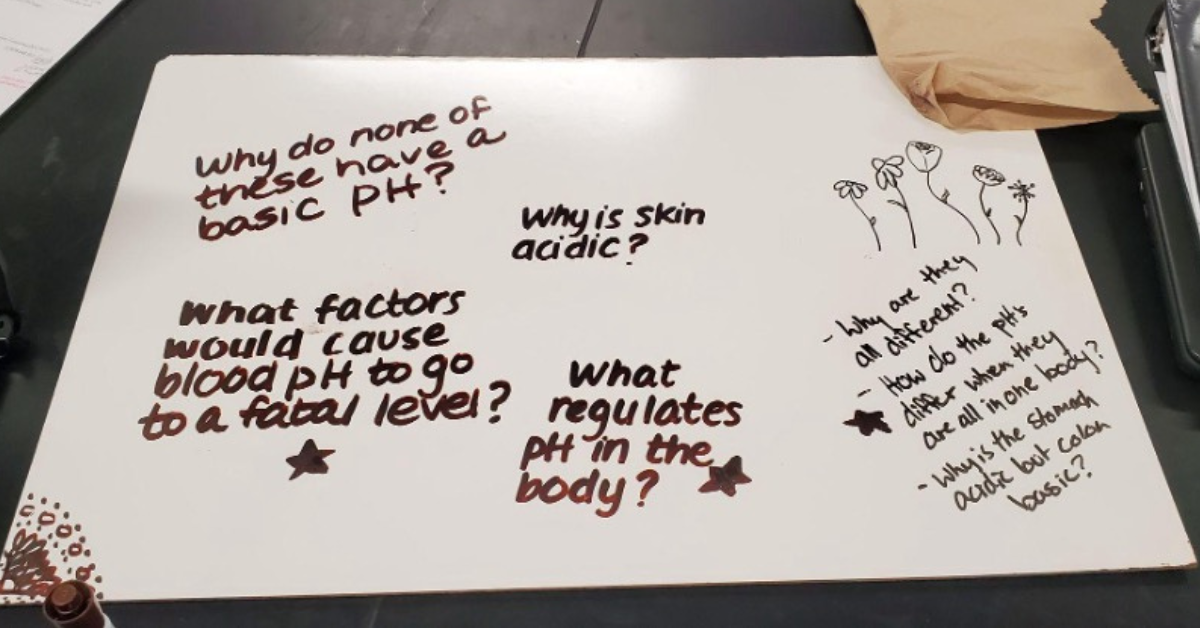 Why do none of
these have a
basic pH?
Why is skin
acidic?
What factors
would cause
blood pH to go
to a fatal level?
What
regulates
pH in the
body?
- Why are they
all different?
- How do the pH's
differ when they
are all in one body?
- Why is the stomach
acidic but colon
basic?